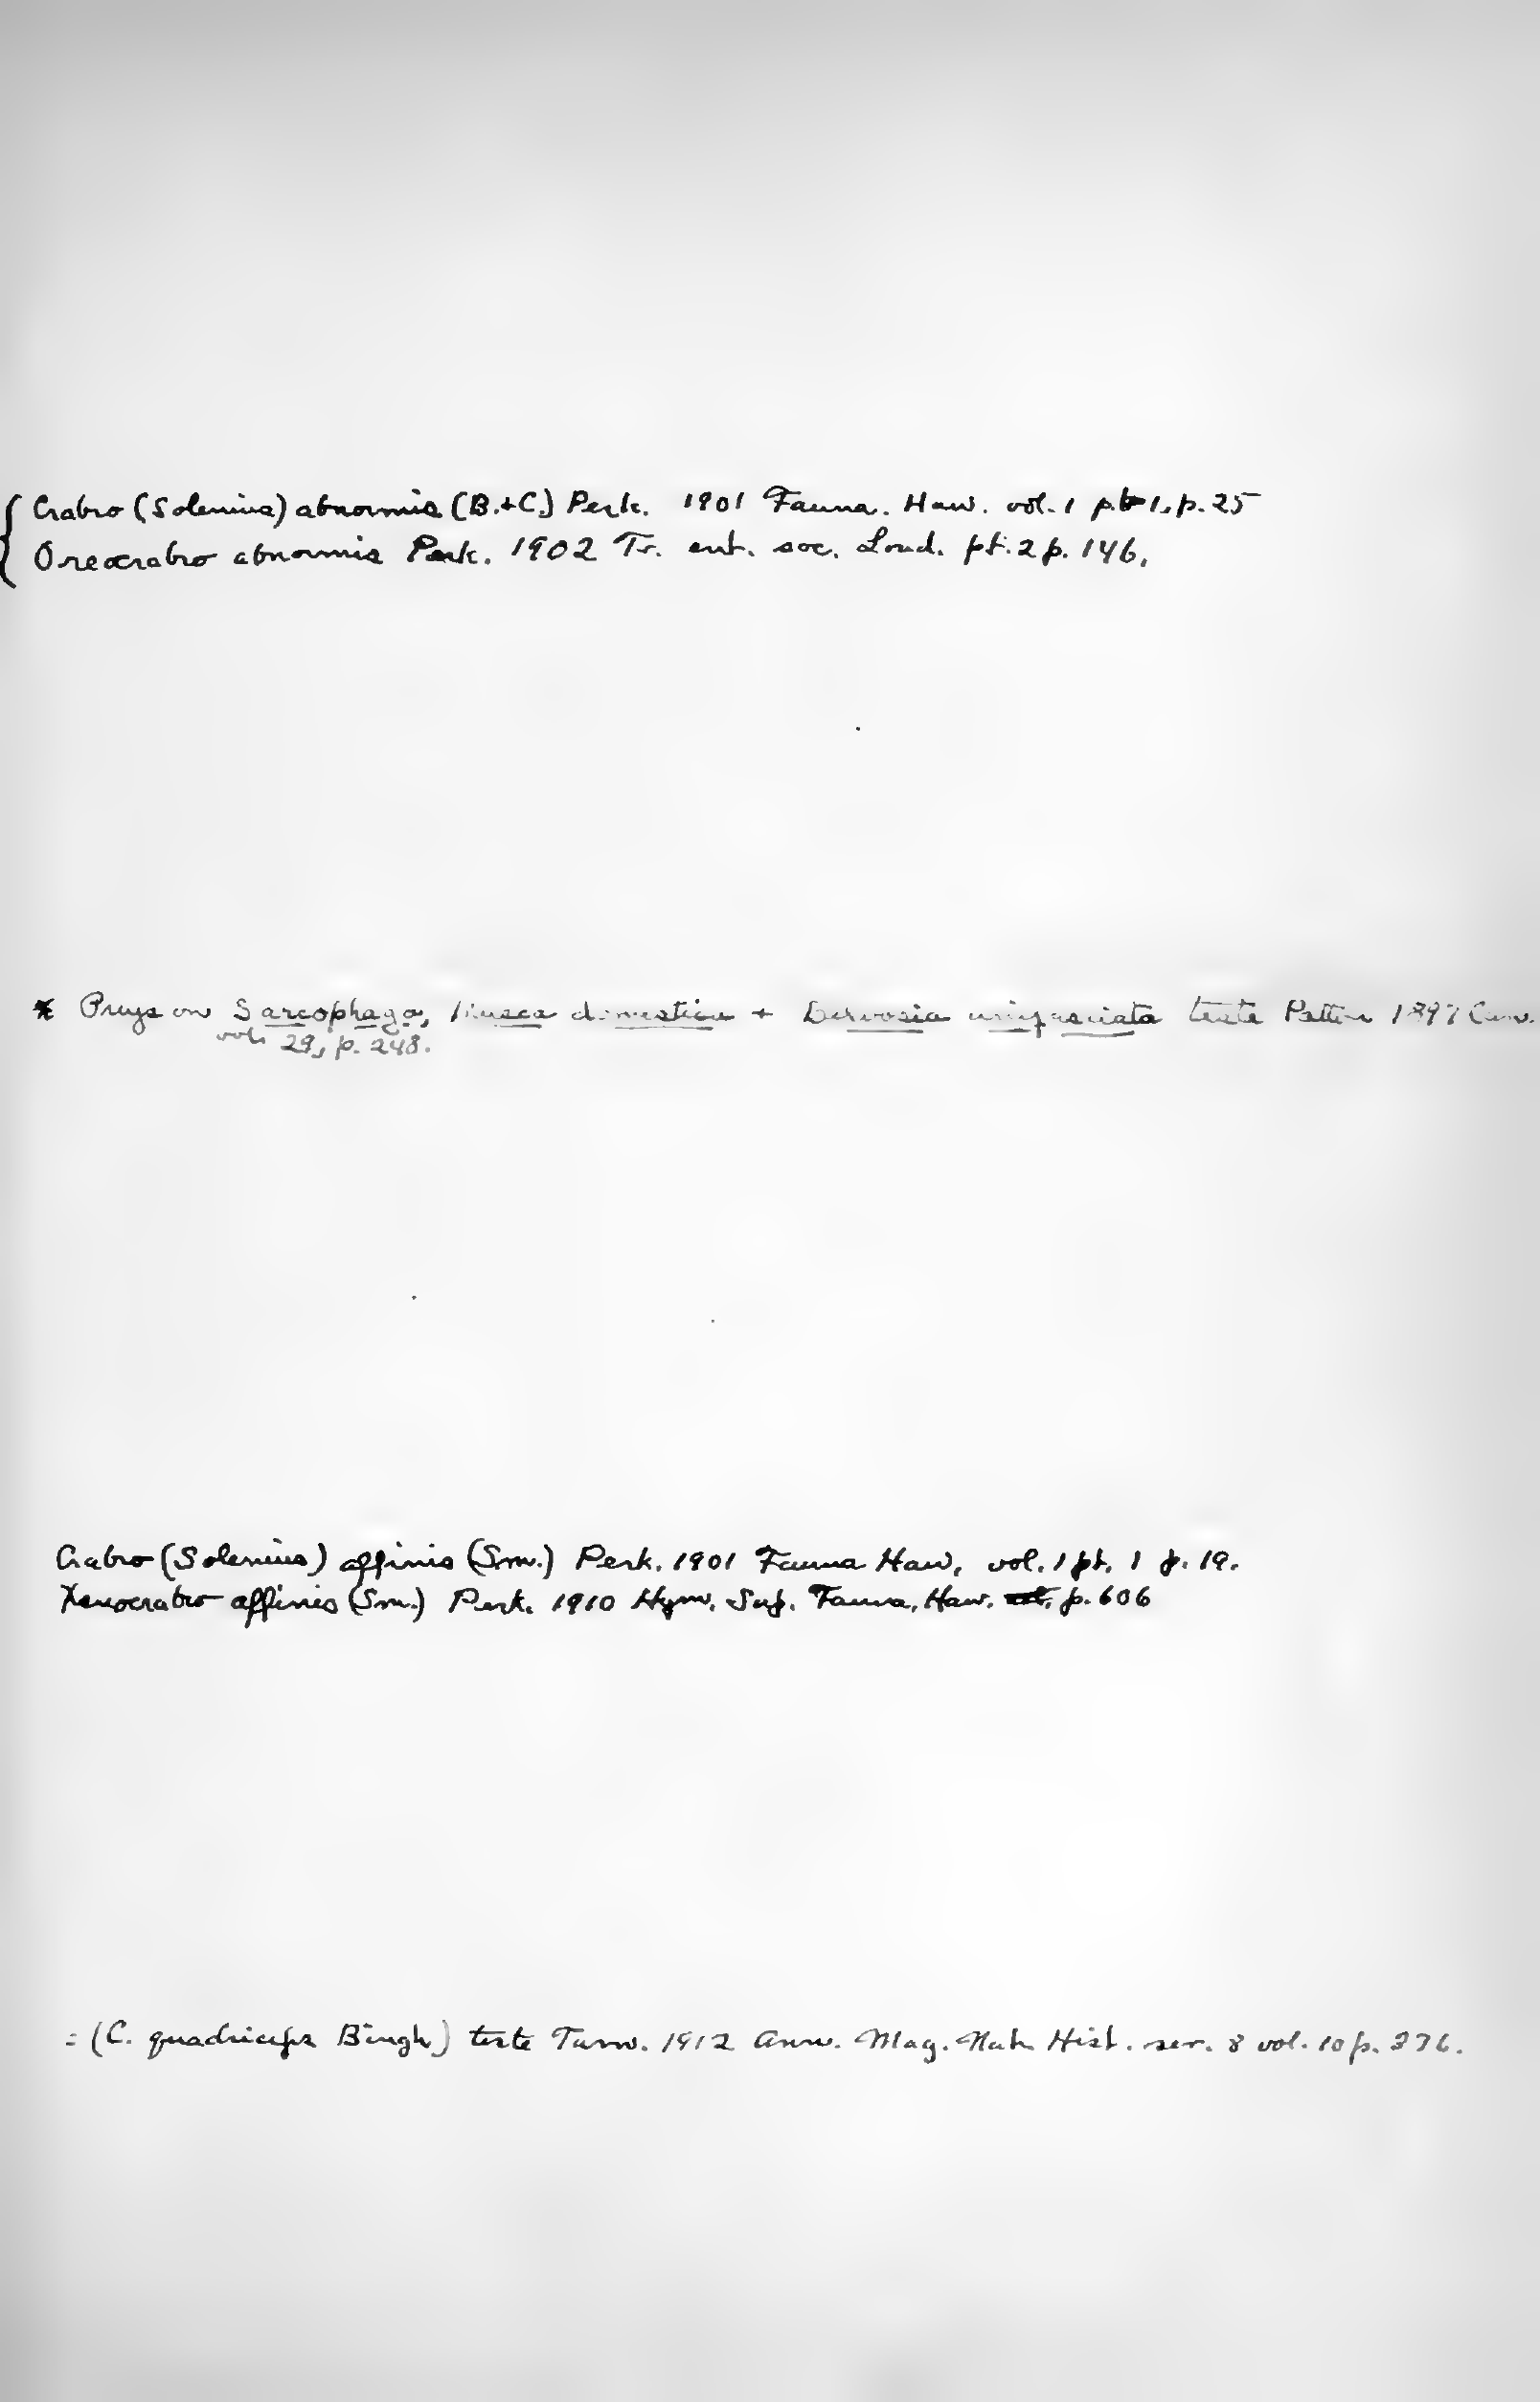 { Crabro (Solenius) abnormis (B.+C.) Perk. 1901 Fauna. Haw. vol. 1 pt 1, p. 25
Oreocrabro abnormis Perk. 1902 Tr. ent. soc. Lond. pt. 2 p. 146.
* Preys on Sarcophaga, Musca domestica + unifasciata teste Patton 1897 Can.
vol. 29, p. 248.
Crabro (Solenius) affinis (Sm.) Perk. 1901 Fauna Haw. vol. 1 pt. 1 p. 19.
Xenocrabro affinis (Sm.) Perk. 1910 Hym. Sup. Fauna. Haw. p. 606
= (C. quadriceps Bingh) teste Turn. 1912 Ann. Mag. Nat. Hist. ser. 8 vol. 10 p. 376.